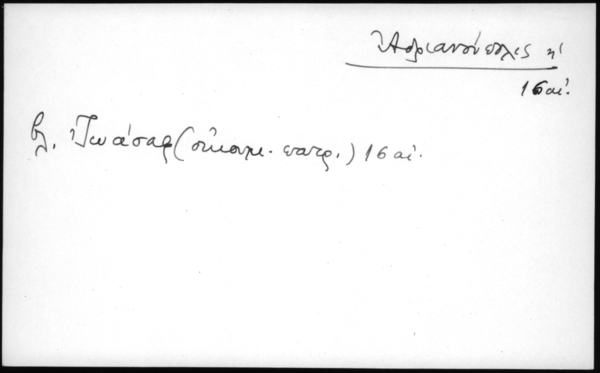 Ἀδριανούπολις η'
16 αἰ.
βλ. Ἰωάσαφ (οἰκουμ. πατρ.) 16 αἰ.